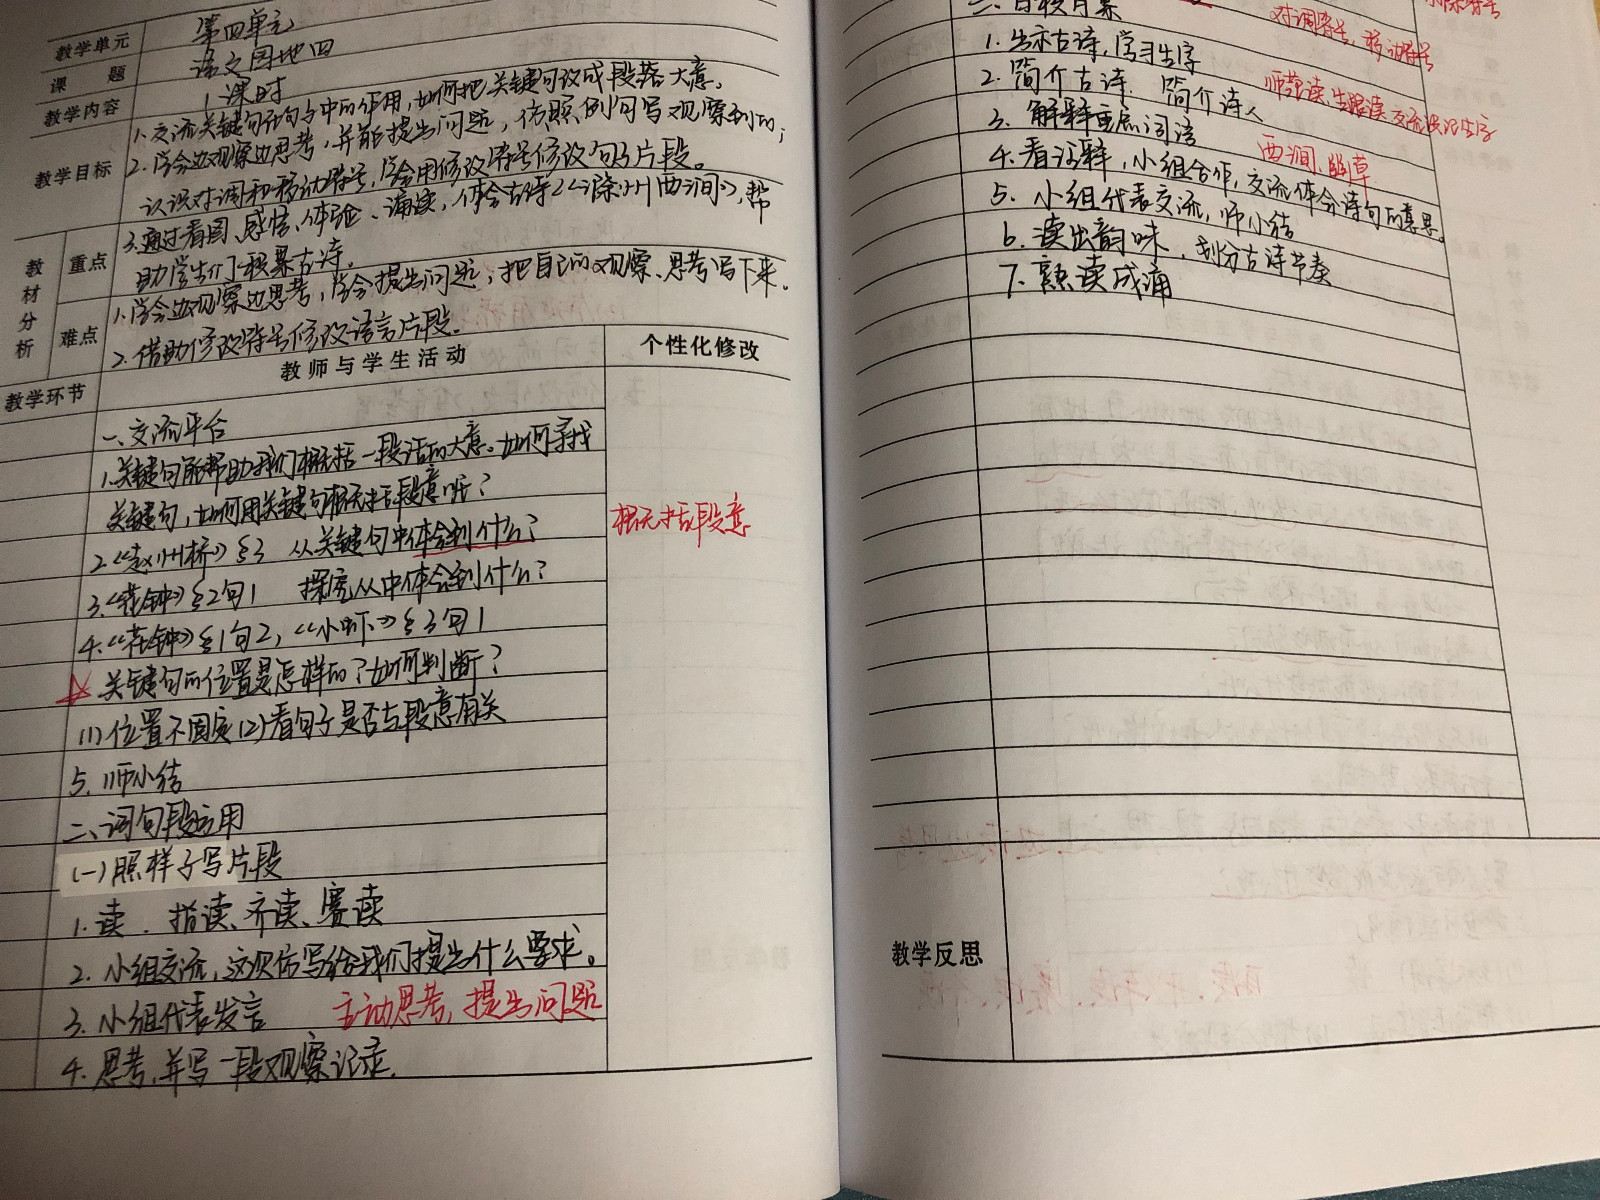 教学单元 第四单元
课题 语文园地四
教学内容 1课时
教学目标 1.交流关键句在句与中的作用,如何把关键句改成段落大意。
2.学会边观察边思考,并能提出问题,仿照例句写观察到的;
认识对调和移动符号,学会用修改符号修改句子片段。
3.通过看图、感悟、体验、诵读,体会古诗《滁州西涧》,帮
助学生们积累古诗。
教材分析 重点 难点
1.学会边观察边思考,学会提出问题,把自己的观察、思考写下来。
2.借助修改符号修改语言片段。
教学环节 教师与学生活动 个性化修改
一、交流平台
1.关键句能帮助我们概括一段话的大意。如何寻找
关键句,如何用关键句概括段意呢?
概括段意
2.《赵州桥》§3 从关键句中体会到什么?
3.《花钟》§2句1 探究从中体会到什么?
4.《花钟》§1句2,《小虾》§3句1
关键句的位置是怎样的?如何判断?
(1)位置不固定(2)看句子是否与段意有关
5.师小结
二、词句段运用
(一)照样子写片段
1.读.指读、齐读、赛读
2.小组交流,这次仿写给我们提出什么要求。
3.小组代表发言 主动思考,提出问题
4.思考,并写一段观察记录.
三、日积月累
对调符号,移动符号
1.出示古诗,学习生字
2.简介古诗.简介诗人
师范读、生跟读
3.解释重点词语
西涧、幽草
4.看注释,小组合作,交流体会诗句的意思。
5.小组代表交流,师小结
6.读出韵味,划分古诗节奏
7.熟读成诵
教学反思